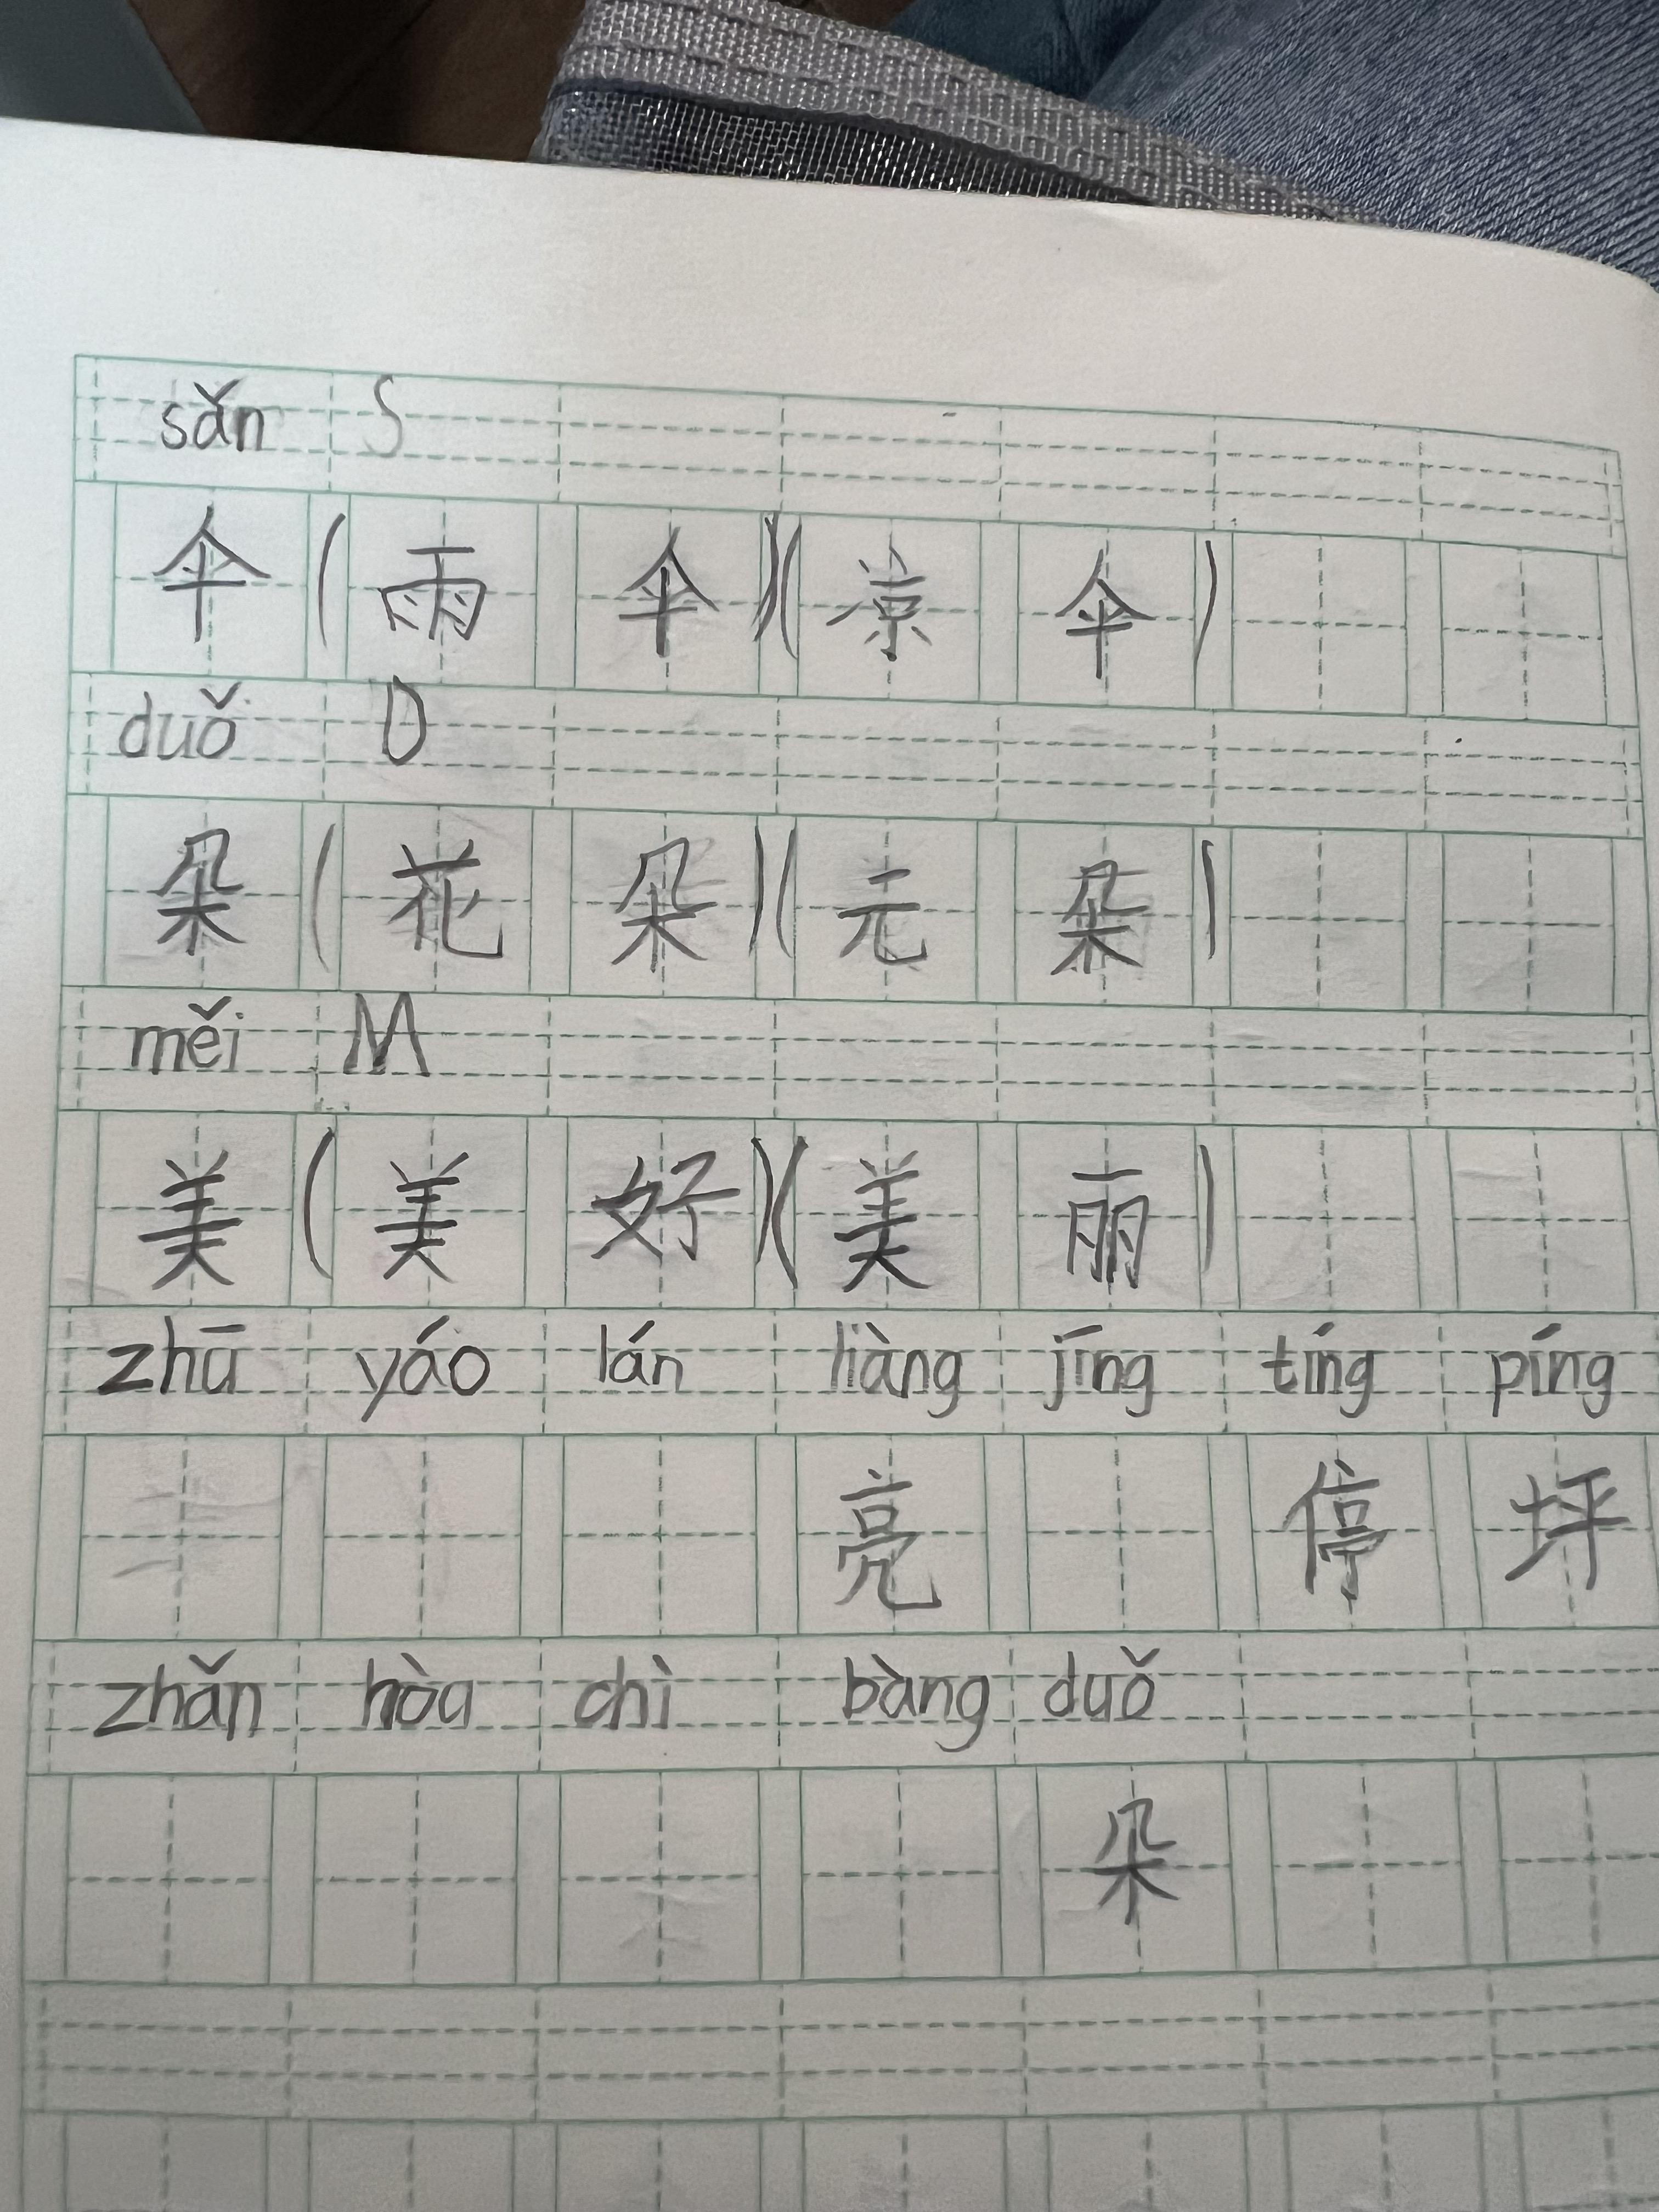 sǎn S
伞(雨伞)(凉伞)
duǒ D
朵(花朵)(元朵)
měi M
美(美好)(美丽)
zhū yáo lán liàng jīng tíng píng
亮 停 坪
zhǎn hòu chì bàng duǒ
朵